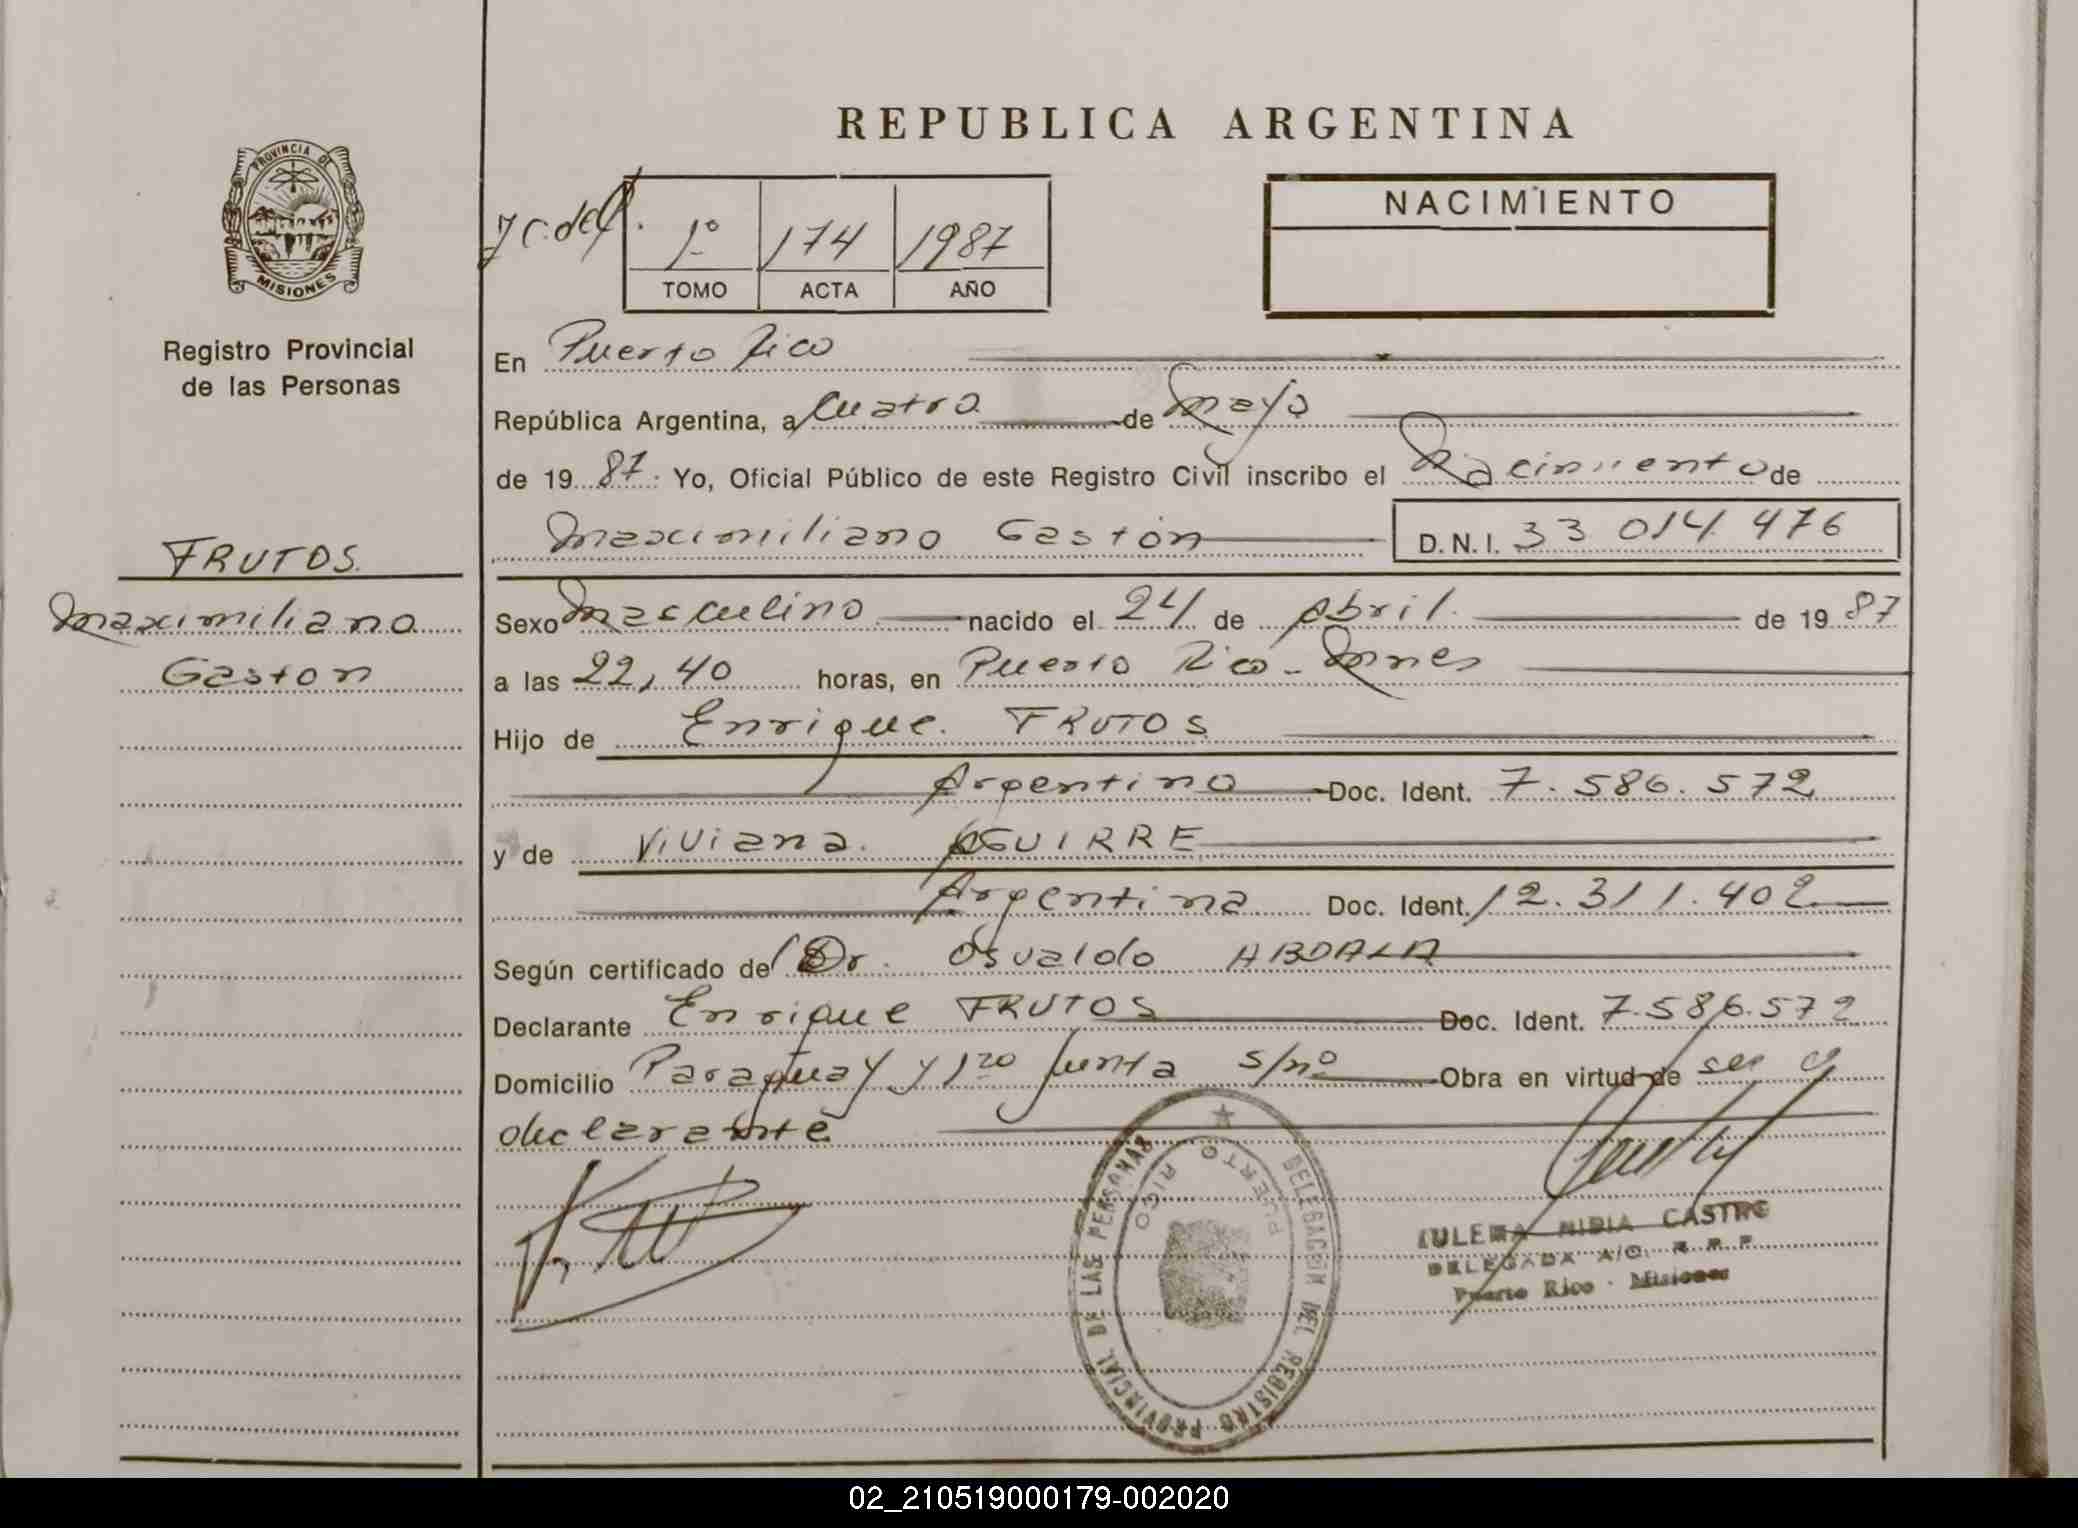 REPUBLICA ARGENTINA
PROVINCIA DE
MISIONES
Registro Provincial
de las Personas
1º 174 1987
TOMO ACTA AÑO
NACIMIENTO
En Puerto Rico
República Argentina, a Cuatro de Mayo
de 19 87. Yo, Oficial Público de este Registro Civil inscribo el Nacimiento de
Maximiliano Gastón D.N.I. 33 014 476
FRUTOS.
Maximiliano
Gaston
Sexo Masculino nacido el 24 de Abril de 19 87
a las 22,40 horas, en Puerto Rico - Mnes
Hijo de Enrique FRUTOS
Argentino Doc. Ident. 7.586.572
y de Viviana AGUIRRE
Argentina Doc. Ident. 12.311.402
Según certificado del Dr. Osvaldo ABDALA
Declarante Enrique FRUTOS Doc. Ident. 7.586.572
Domicilio Paraguay y 1ra Junta s/nº Obra en virtud de ser el
declarante
DELEGACION DEL REGISTRO PROVINCIAL DE LAS PERSONAS
PUERTO RICO
NIDIA CASTRO
DELEGADA A/C. R. P. P.
Puerto Rico - Misiones
02_210519000179-002020